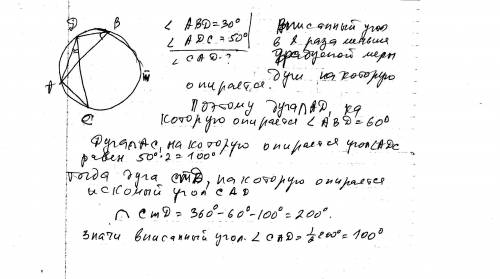 D B
A
C
m
∠ ABD=30°
∠ ADC=50°
∠ CAD-?
Вписанный угол
в 2 раза меньше
градусной меры
дуги на которую
опирается.
Поэтому дуга AD, на
которую опирается ∠ABD=60°
Дуга∩AC, на которую опирается угол∠ADC
равен 50°·2=100°
Тогда дуга CmD, на которую опирается
искомый угол CAD
∩ CmD = 360°-60°-100°=200°.
Значи вписанный угол ∠ CAD = 1/2 200°=100°